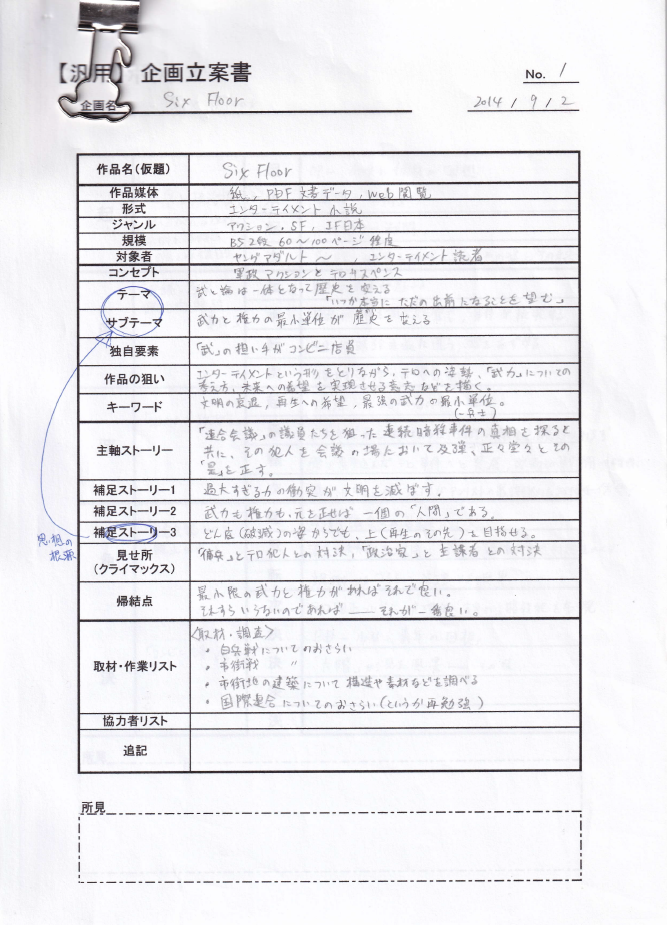 【汎用】 企画立案書
No. 1
企画名 Six Floor
2014 / 9 / 2
作品名(仮題) Six Floor
作品媒体 紙, PDF 文書データ, Web閲覧
形式 エンターテイメント小説
ジャンル アクション, SF, IF日本
規模 B5 2段 60〜100ページ程度
対象者 ヤングアダルト 〜 , エンターテイメント読者
コンセプト 軍政アクションとテロサスペンス
テーマ 武と論は一体となって歴史を変える
「いつか本当に ただの出前になることを望む」
サブテーマ 武力と権力の最小単位が歴史を変える
独自要素 「武」の担い手がコンビニ店員
作品の狙い エンターテイメントという形をとりながら、テロへの姿勢、「武力」についての
考え方、未来への希望を実現させる などを描く。
キーワード 文明の衰退, 再生への希望, 最強の武力の最小単位。
(一兵士)
主軸ストーリー 「連合会議」の議員たちを狙った連続暗殺事件の真相を探ると
共に、その犯人を会議の場において糾弾、正々堂々とその
「是」を正す。
補足ストーリー1 過大すぎる力の衝突が文明を滅ぼす。
補足ストーリー2 武力も権力も、元を正せば 一個の「人間」である。
補足ストーリー3 どん底(破滅)の姿からでも、上(再生のその先)を目指せる。
思想の
根源
見せ所
(クライマックス) 「傭兵」とテロ犯人との対決, 「政治家」と主謀者との対決
帰結点 最小限の武力と権力があればそれで良い。
それすらいらないのであれば —— それが一番良い。
取材・作業リスト <取材・調査>
・白兵戦についてのおさらい
・市街戦 〃
・市街地の建築について 構造や素材などを調べる
・国際連合についてのおさらい(というか再勉強)
協力者リスト
追記
所見